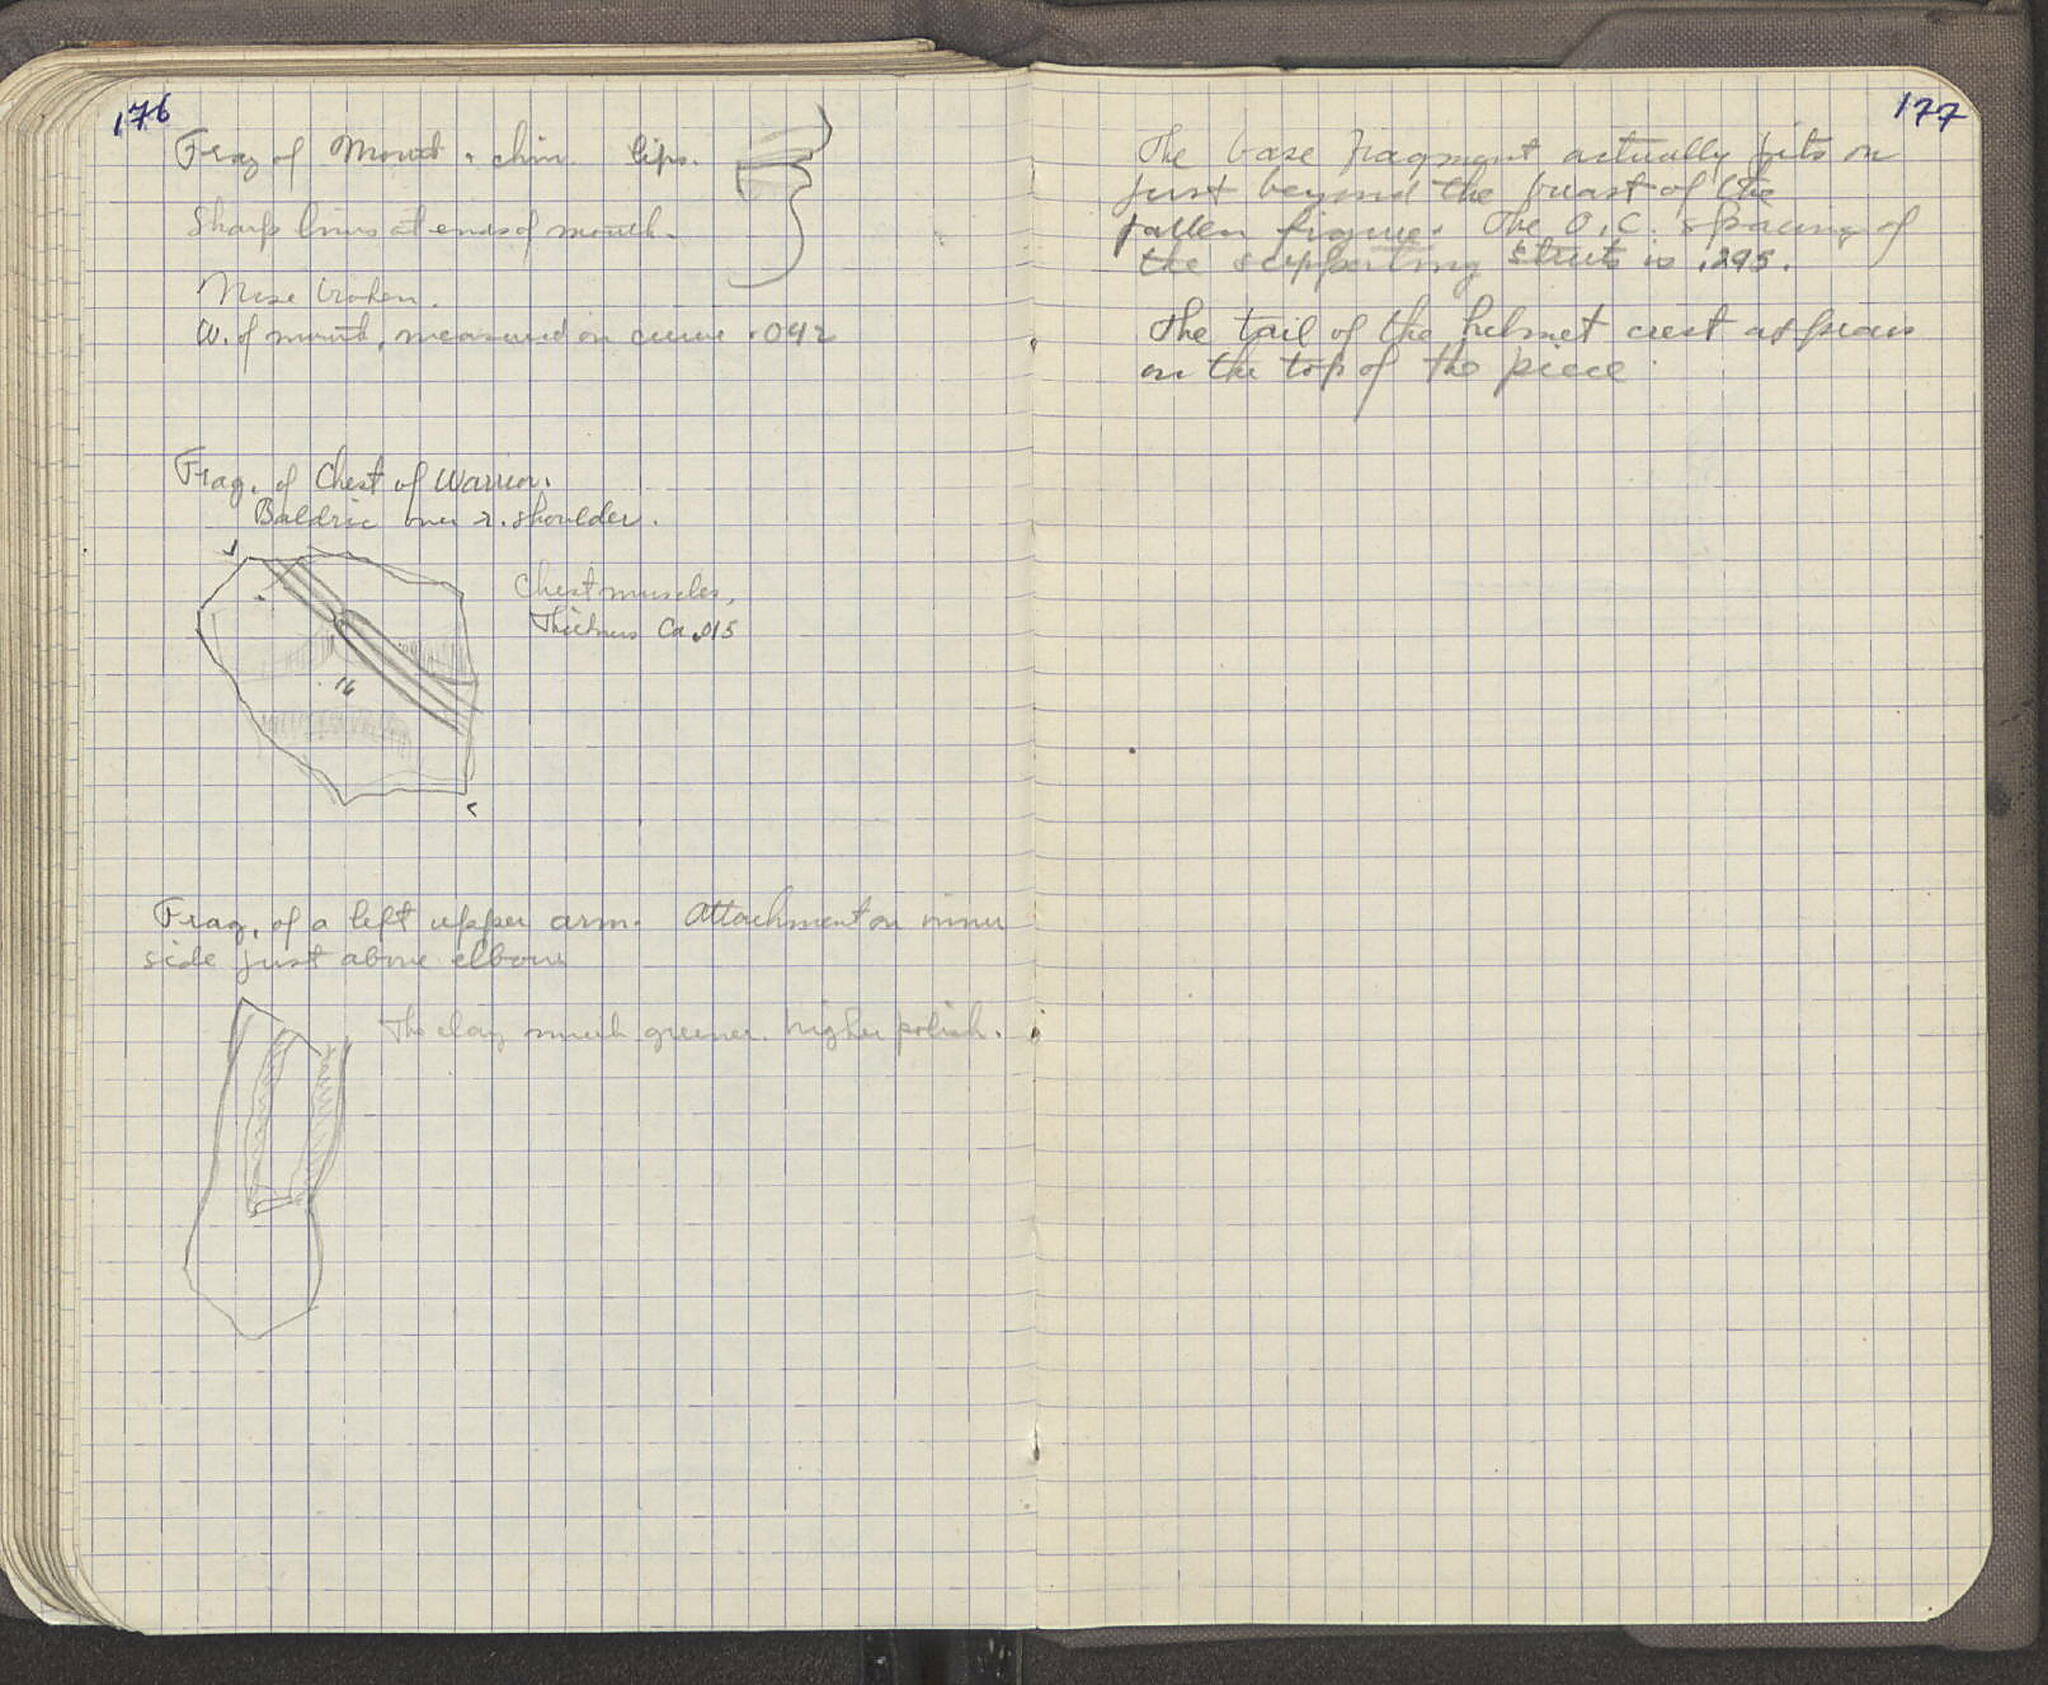 176
Frag of Mouth + chin. lips.
Sharp lines at ends of mouth.
Nose broken.
W. of mouth, measured on curve .042
Frag. of Chest of Warrior.
Baldric over r. shoulder.
Chest muscles,
Thickness Ca .015
16
Frag. of a left upper arm. Attachment on inner
side just above elbow
The clay much greener. higher polish.
177
The base fragment actually fits on
just beyond the breast of the
fallen figure. The O.C. spacing of
the supporting struts is .295.
The tail of the helmet crest appears
on the top of the piece